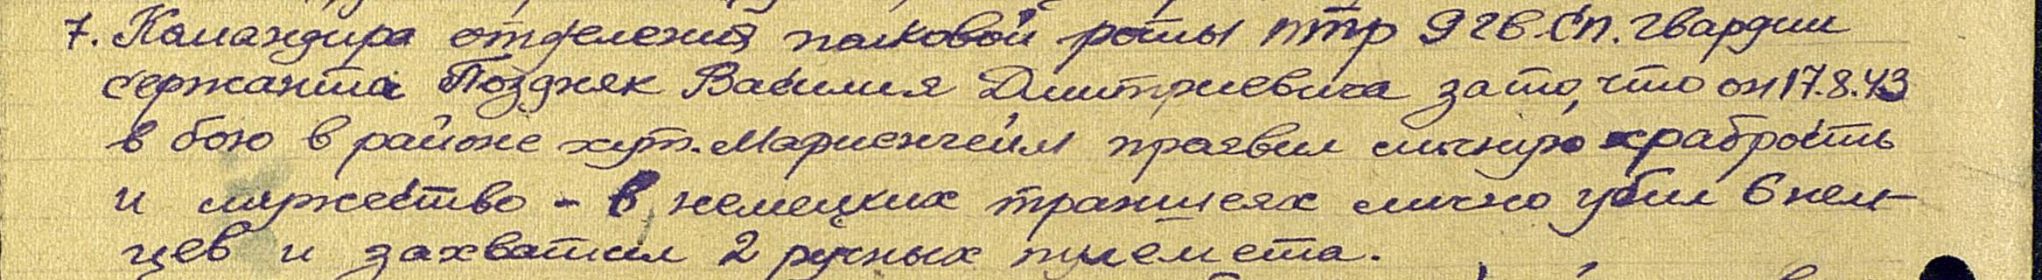 7. Командира отделения полковой роты птр 9 гв. сп. гвардии
сержанта Поздняк Василия Дмитриевича за то, что он 17.8.43
в бою в районе хут. Мариенгейм проявил личную храбрость
и мужество - в немецких траншеях лично убил 6 нем-
цев и захватил 2 ручных пулемета.